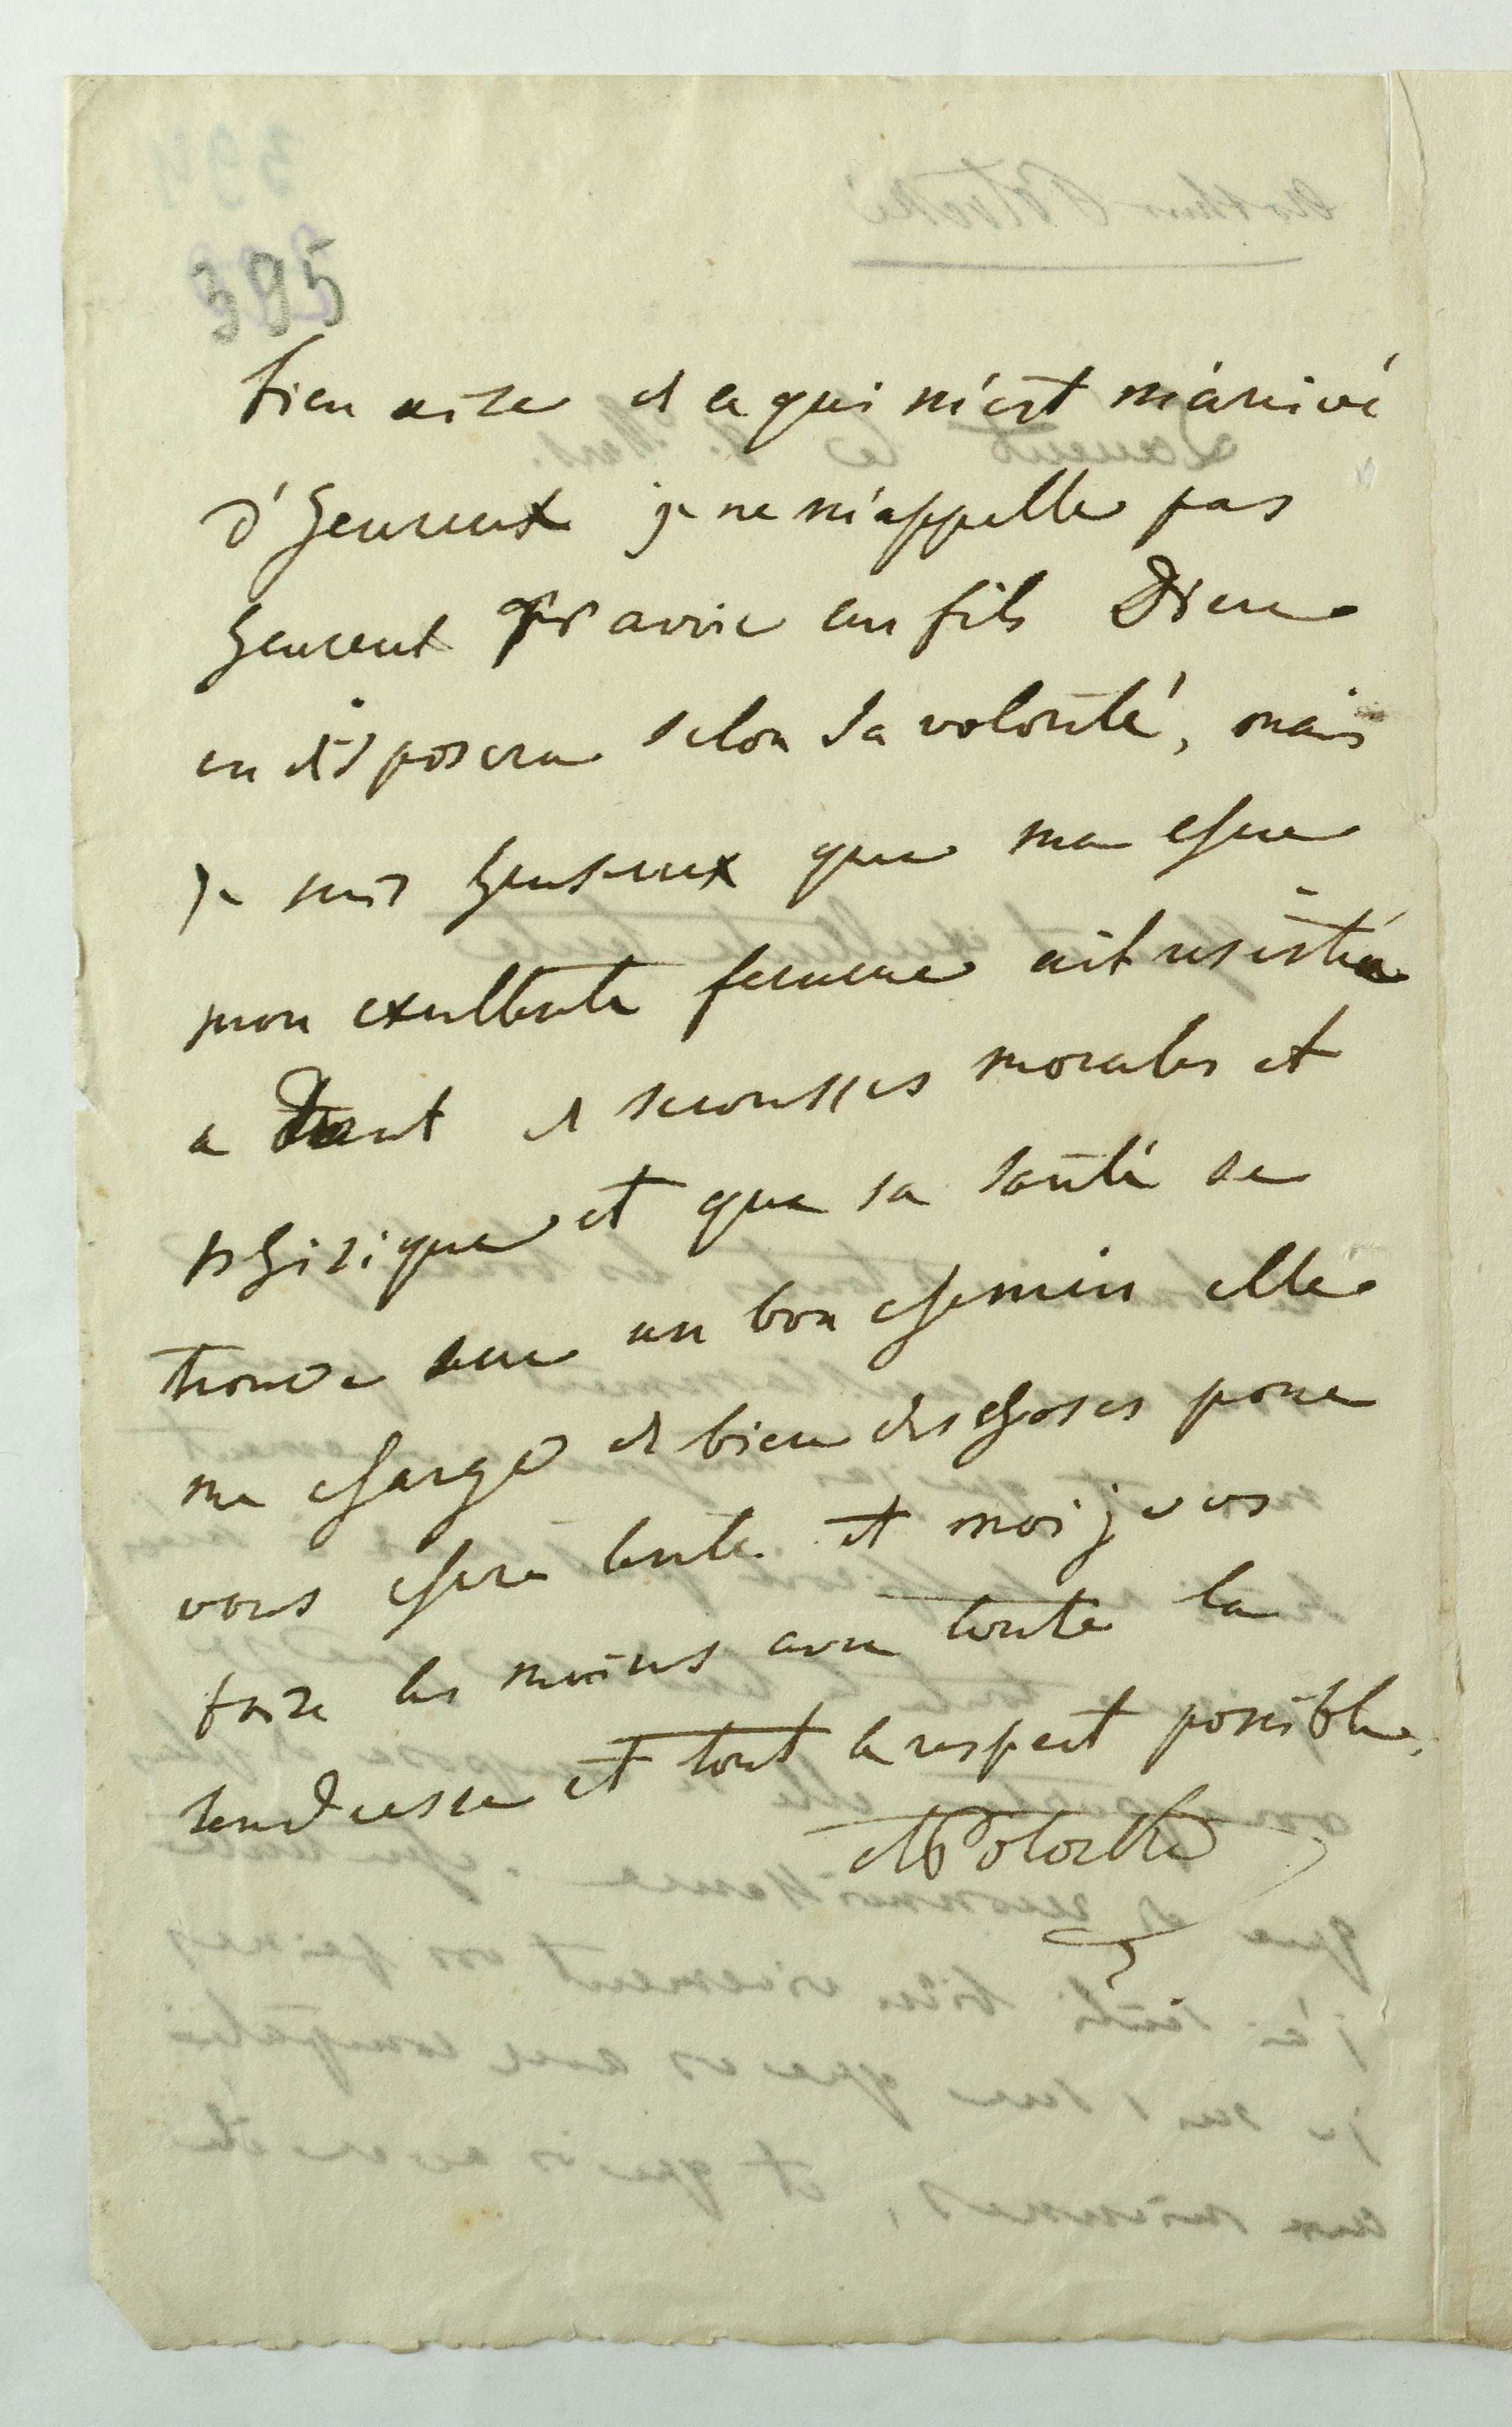 395
bien aise de ce qui m'est m'arrivé
d'heureux je ne m'appelle pas
heureux d'avoir un fils Dieu
en disposera selon sa volonté, mais
je suis heureux que ma chere
mon excellente femme ait resistée
a tant de secousses morales et
phisique et que sa santé se
trouve sur un bon chemin elle
me charge de bien des choses pour
vous chere tante et moi je vs
baise les mains avec toute la
tendresse et tout le respect possible.